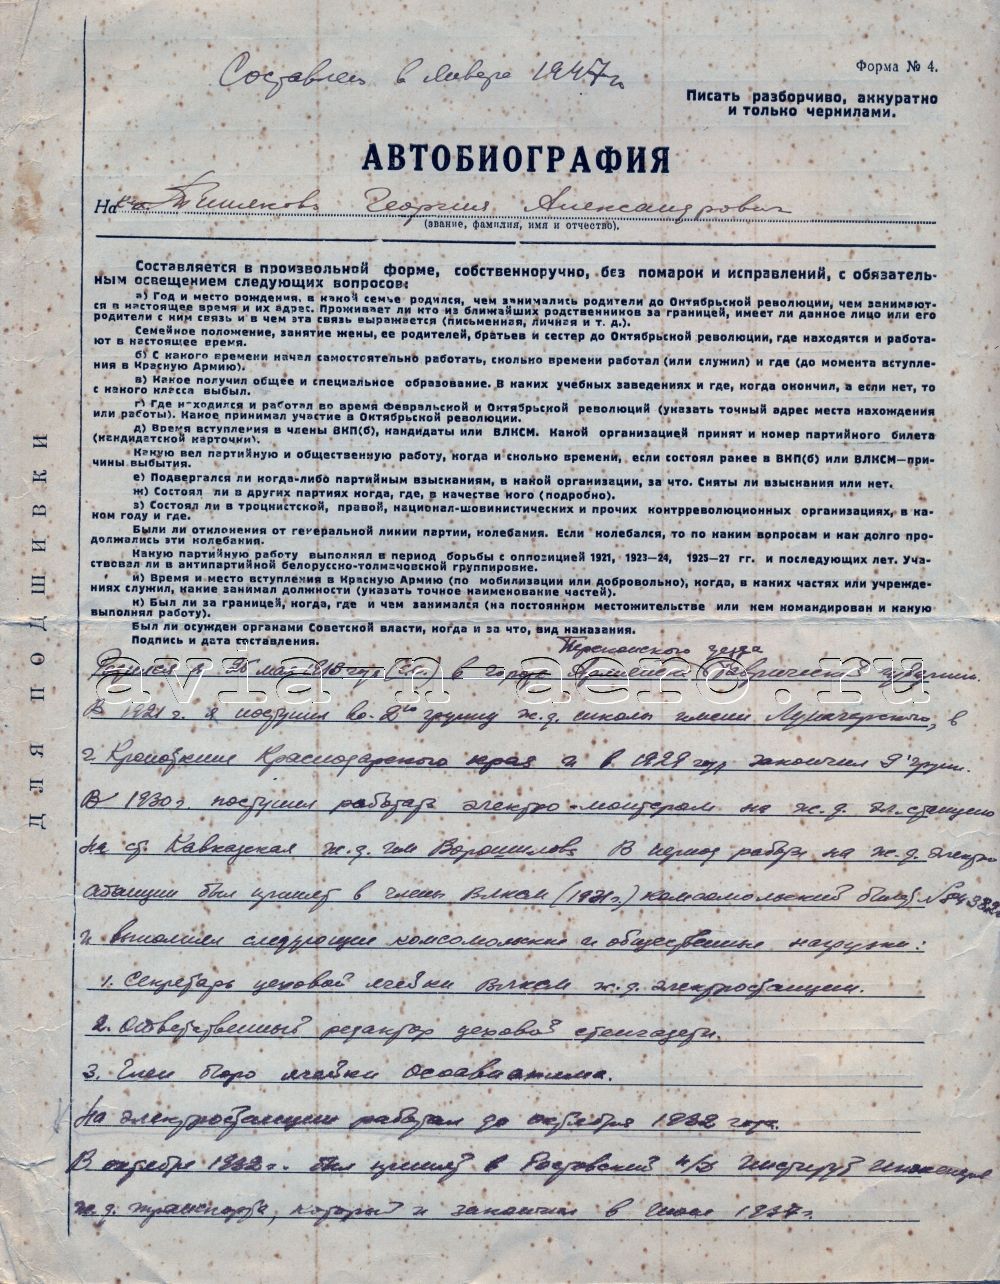 Форма № 4.
Составлен в Январе 1947 г.
Писать разборчиво, аккуратно
и только чернилами.
АВТОБИОГРАФИЯ
На Георгия Александрович
(звание, фамилия, имя и отчество).
Составляется в произвольной форме, собственноручно, без помарок и исправлений, с обязатель-
ным освещением следующих вопросов:
а) Год и место рождения, в какой семье родился, чем занимались родители до Октябрьской революции, чем занимают-
ся в настоящее время и их адрес. Проживает ли кто из ближайших родственников за границей, имеет ли данное лицо или его
родители с ним связь и в чем эта связь выражается (письменная, личная и т. д.).
Семейное положение, занятие жены, ее родителей, братьев и сестер до Октябрьской революции, где находятся и работа-
ют в настоящее время.
б) С какого времени начал самостоятельно работать, сколько времени работал (или служил) и где (до момента вступле-
ния в Красную Армию).
в) Какое получил общее и специальное образование. В каких учебных заведениях и где, когда окончил, а если нет, то
с какого класса выбыл.
г) Где находился и работал во время Февральской и Октябрьской революций (указать точный адрес места нахождения
или работы). Какое принимал участие в Октябрьской революции.
д) Время вступления в члены ВКП(б), кандидаты или ВЛКСМ. Какой организацией принят и номер партийного билета
(кандидатской карточки).
Какую вел партийную и общественную работу, когда и сколько времени, если состоял ранее в ВКП(б) или ВЛКСМ—при-
чины выбытия.
е) Подвергался ли когда-либо партийным взысканиям, в какой организации, за что. Сняты ли взыскания или нет.
ж) Состоял ли в других партиях когда, где, в качестве кого (подробно).
з) Состоял ли в троцкистской, правой, национал-шовинистических и прочих контрреволюционных организациях, в ка-
ком году и где.
Были ли отклонения от генеральной линии партии, колебания. Если колебался, то по каким вопросам и как долго про-
должались эти колебания.
Какую партийную работу выполнял в период борьбы с оппозицией 1921, 1923—24, 1925—27 гг. и последующих лет. Уча-
ствовал ли в антипартийной белорусско-толмачовской группировке.
и) Время и место вступления в Красную Армию (по мобилизации или добровольно), когда, в каких частях или учрежде-
ниях служил, какие занимал должности (указать точное наименование частей).
к) Был ли за границей, когда, где и чем занимался (на постоянном местожительстве или кем командирован и какую
выполнял работу).
Был ли осужден органами Советской власти, когда и за что, вид наказания.
Подпись и дата составления.
Перекопского уезда
Родился в в городе Армянске Таврической губернии.
В 1921 г. я поступил во 2ю группу ж.д. школы имени Луначарского, в
г. Кропоткине Краснодарского края и в 1929 году закончил 9 групп.
В 1930 г. поступил работать электро-монтером на ж.д. эл.станцию
на ст. Кавказская ж.д. им Ворошилова В период работы на ж.д. электро
станции был принят в члены ВЛКСМ (1931 г.) комсомольский билет
и выполнял следующие комсомольские и общественные нагрузки:
1. Секретарь цеховой ячейки ВЛКСМ ж.д. электростанции.
2. Ответственный редактор цеховой стенгазеты.
3. Член бюро ячейки Осоавиахима.
На электростанции работал до октября 1932 года.
В октябре 1932 г. был принят в Ростовский Институт Инженеров
ж.д. транспорта, который и закончил в Июле 1937 г.
ДЛЯ ПОДШИВКИ
avia-n-aero.ru